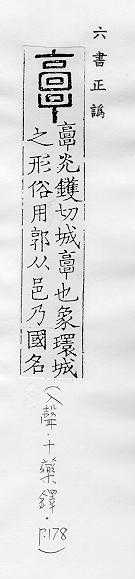 六書正譌
𩫏
𩫏光鑊切城𩫏也象環城
之形俗用郭从邑乃國名
(入聲·十藥鐸·P.178)